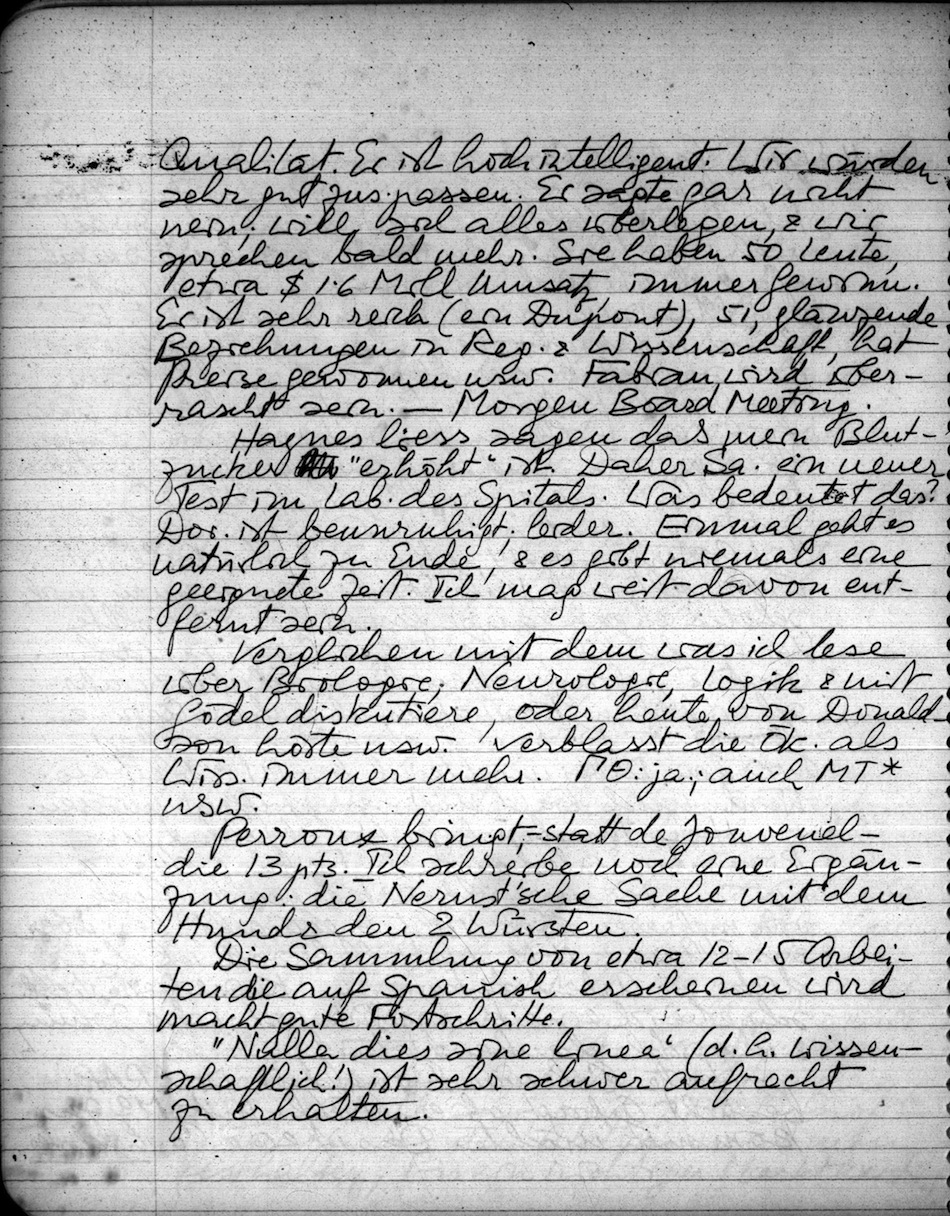 Qualität. Er ist hochintelligent. Wir würden
sehr gut zus.passen. Er sagte gar nicht
nein, will sich alles überlegen, & wir
sprechen bald mehr. Sie haben 50 Leute,
etwa $ 1.6 Mill Umsatz, immer Gewinn.
Er ist sehr reich (ein Dupont), 51, glänzende
Beziehungen in Reg. & Wissenschaft, hat
Preise gewonnen usw. Fabian wird über-
rascht sein. — Morgen Board Meeting.
Haynes liess sagen dass mein Blut-
zucker "erhöht" ist. Daher Sa. ein neuer
Test im Lab. des Spitals. Was bedeutet das?
Dor. ist beunruhigt, leider. Einmal geht es
natürlich zu Ende, & es gibt niemals eine
geeignete Zeit. Ich mag weit davon ent-
fernt sein.
Verglichen mit dem was ich lese
über Biologie, Neurologie, Logik & mit
Gödel diskutiere, oder heute von Donald-
son hörte usw. verblasst die Ök. als
Wiss. immer mehr. ΓΘ: ja; auch MT*
usw.
Perroux bringt, – statt de Jouvenel –
die 13 pts. Ich schreibe noch eine Ergän-
zung: die Nernst'sche Sache mit dem
Hund & den 2 Würsten.
Die Sammlung von etwa 12–15 Arbei-
ten die auf Spanish erscheinen wird
macht gute Fortschritte.
"Nulla dies sine linea" (d.h. wissen-
schaftlich!) ist sehr schwer aufrecht
zu erhalten.